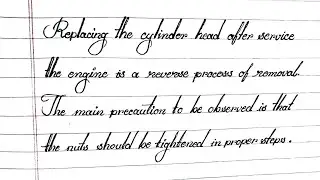 Replacing the cylinder head after service
the engine is a reverse process of removal.
The main precaution to be observed is that
the nuts should be tightened in proper steps.